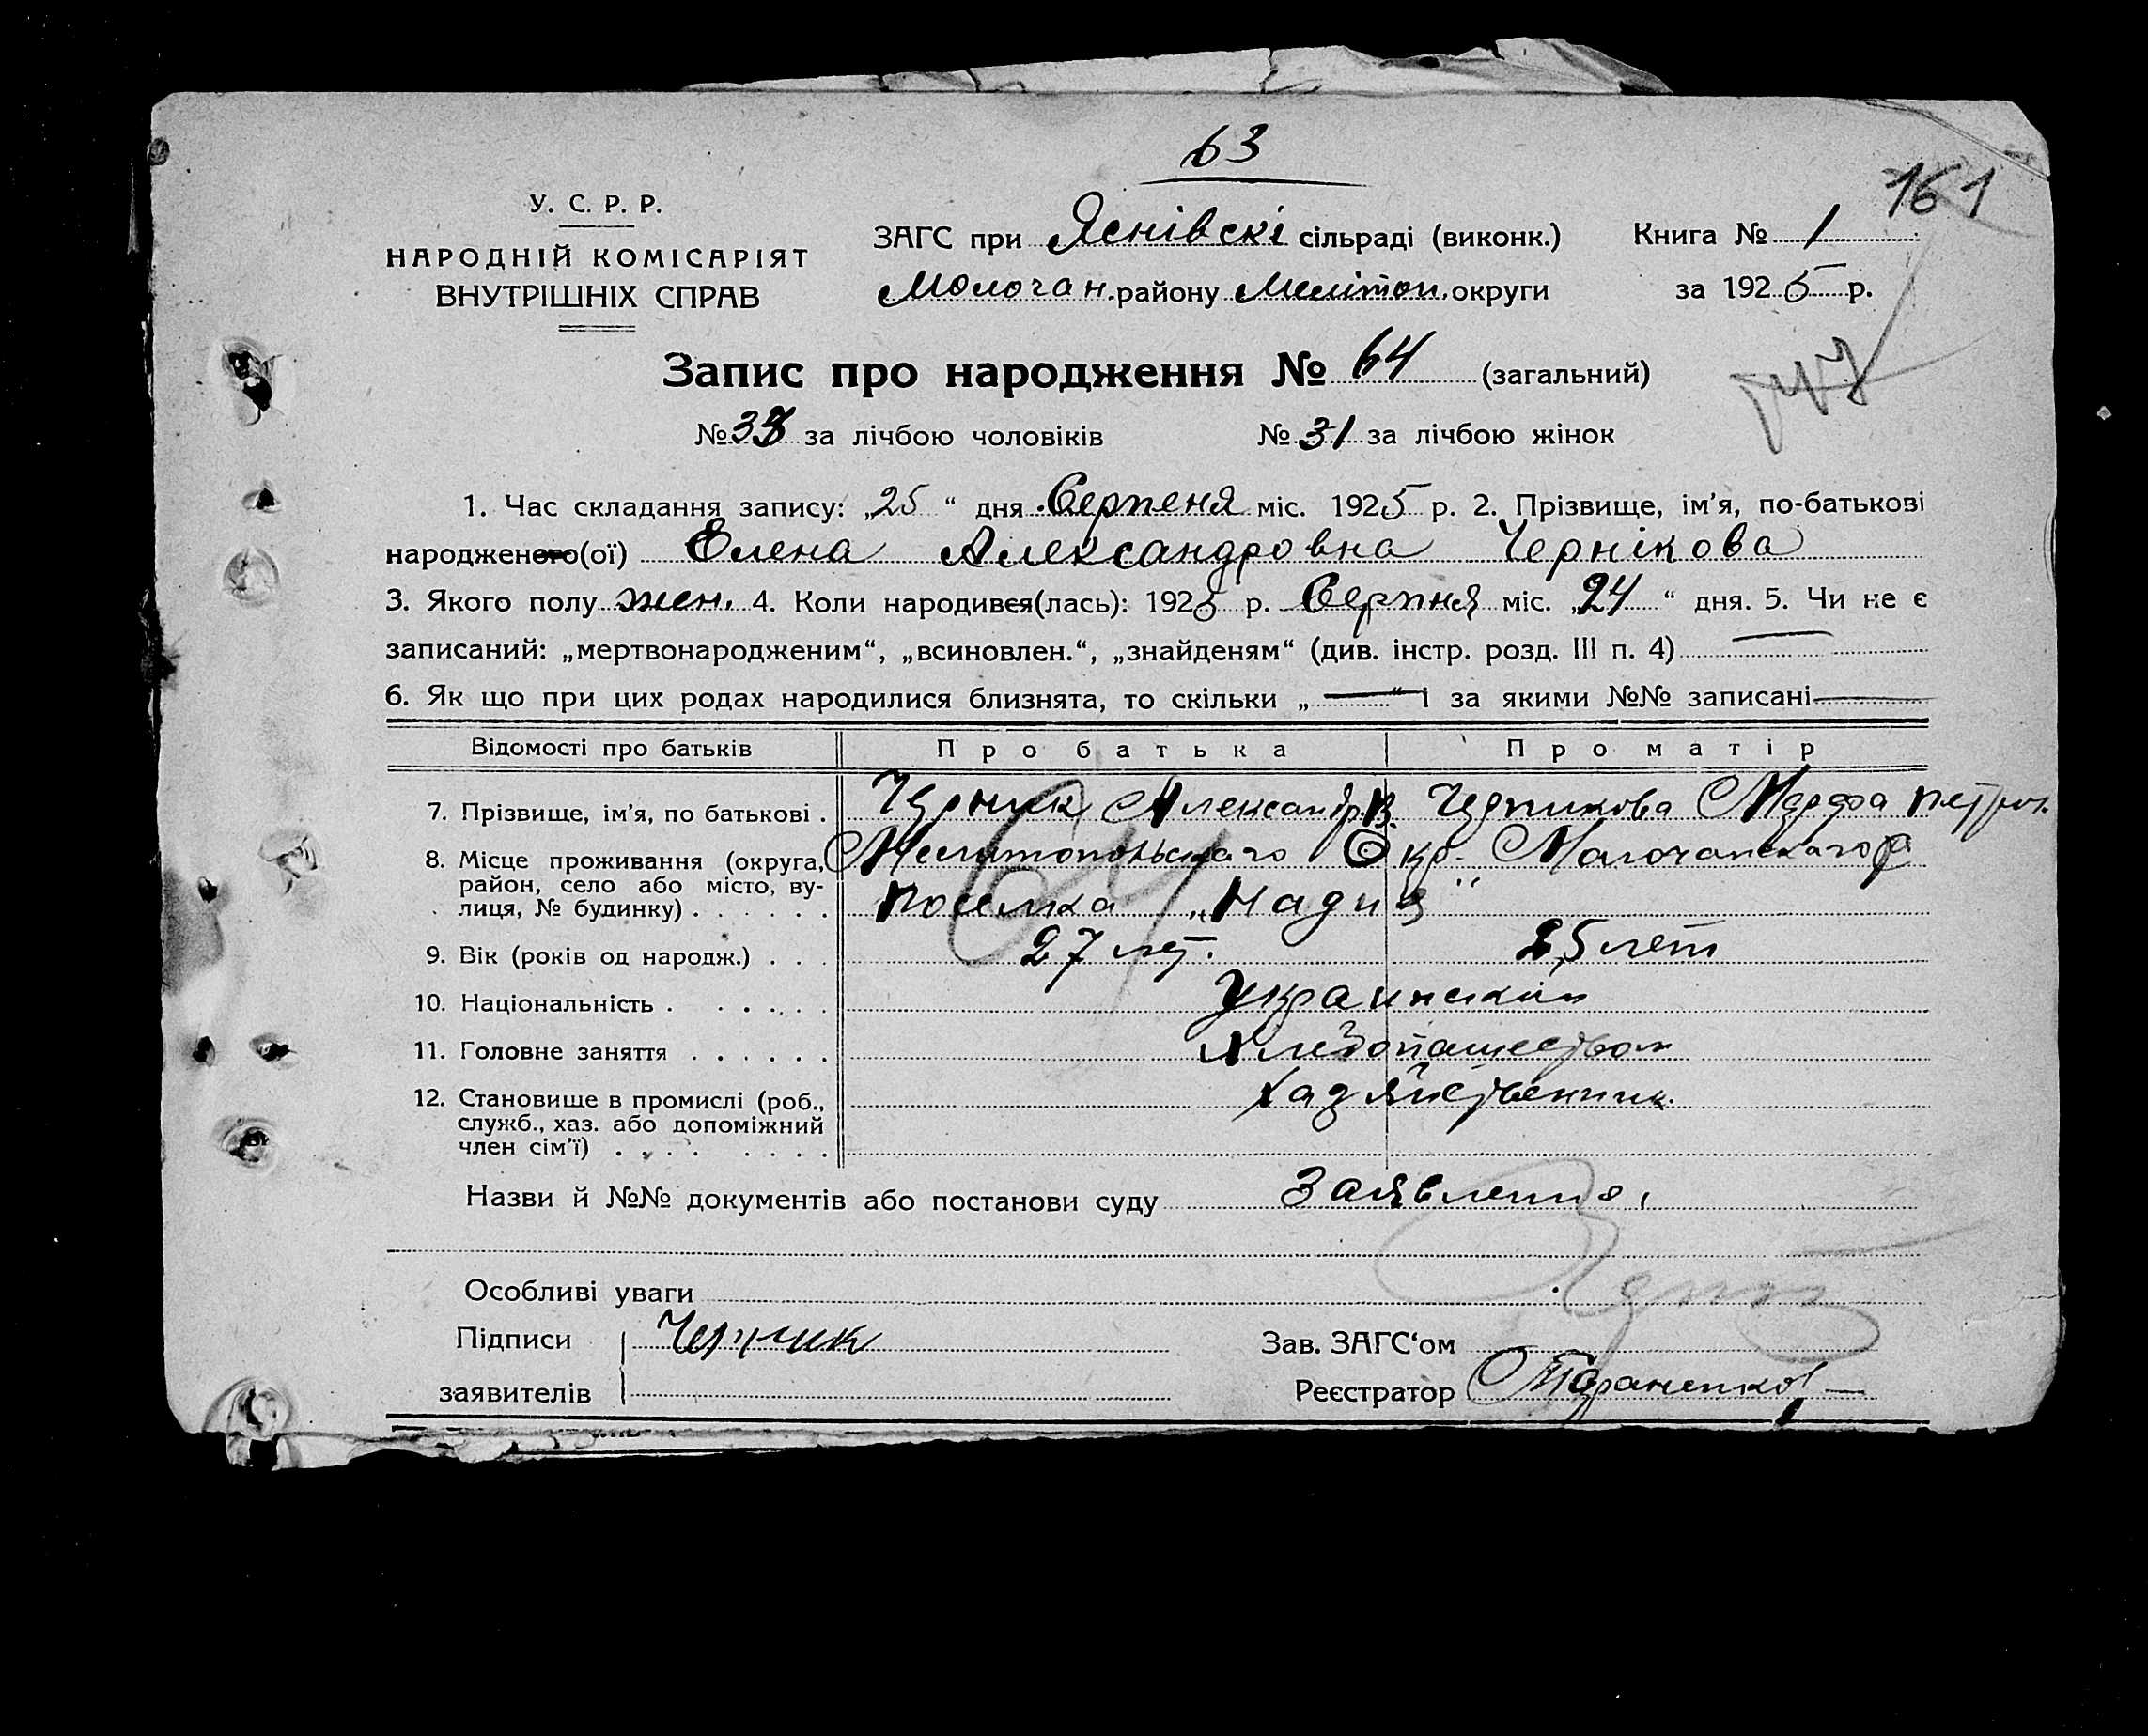 63
161
У. С. Р. Р.
НАРОДНІЙ КОМІСАРІЯТ
ВНУТРІШНІХ СПРАВ
ЗАГС при Яснівскі сільраді (виконк.)
Молочан. району Мелітоп. округи
Книга № 1
за 1925 р.
Запис про народження № 64 (загальний)
№ 33 за лічбою чоловіків № 31 за лічбою жінок
1. Час складання запису: „25“ дня Серпеня міс. 1925 р. 2. Прізвище, ім’я, по-батькові
народженого(ої) Елена Александровна Чернікова
3. Якого полу жен. 4. Коли народився(лась): 1925 р. Серпня міс. „24“ дня. 5. Чи не є
записаний: „мертвонародженим“, „всиновлен.“, „знайденям“ (див. інстр. розд. III п. 4) —
6. Як що при цих родах народилися близнята, то скільки „—“ і за якими №№ записані —
Відомості про батьків Про батька Про матір
7. Прізвище, ім’я, по батькові . Черник Александр В. Черникова Марфа Петров.
8. Місце проживання (округа, Мелитопольскаго Окр. Молочанскаго р
район, село або місто, ву-
лиця, № будинку) . . . . . . поселка „Надия“
64
9. Вік (років од народж.) . . . 27 лет. 25 лет
10. Національність . . . . . . Украинский
11. Головне заняття . . . . . . Хлебопашеством
12. Становище в промислі (роб., Хадяйственник.
служб., хаз. або допоміжний
член сім’ї) . . . . . . . .
Назви й №№ документів або постанови суду Заявления
Особливі уваги
Підписи Черник
заявителів
Зав. ЗАГС‘ом
Реєстратор